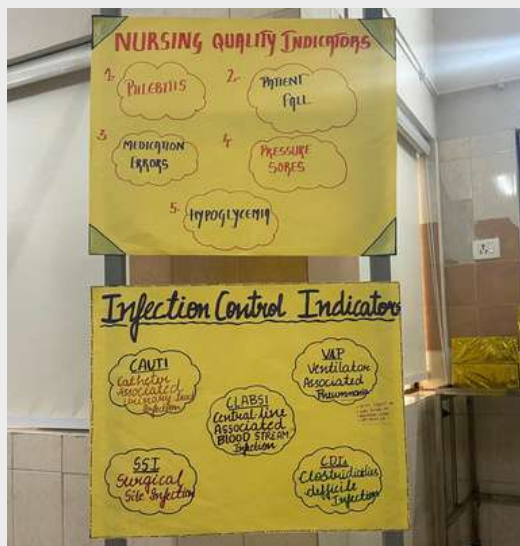 NURSING QUALITY INDICATORS
1. PHLEBITIS
2. PATIENT
FALL
3. MEDICATION
ERRORS
4. PRESSURE
SORES
5. HYPOGLYCEMIA
Infection Control Indicators
CAUTI
Catheter
Associated
Urinary Tract
Infection
VAP
Ventilator
Associated
Pneumonia
CLABSI
Central-line
Associated
BLOOD STREAM
Infection
SSI
Surgical
Site Infection
CDI
difficile
Infection